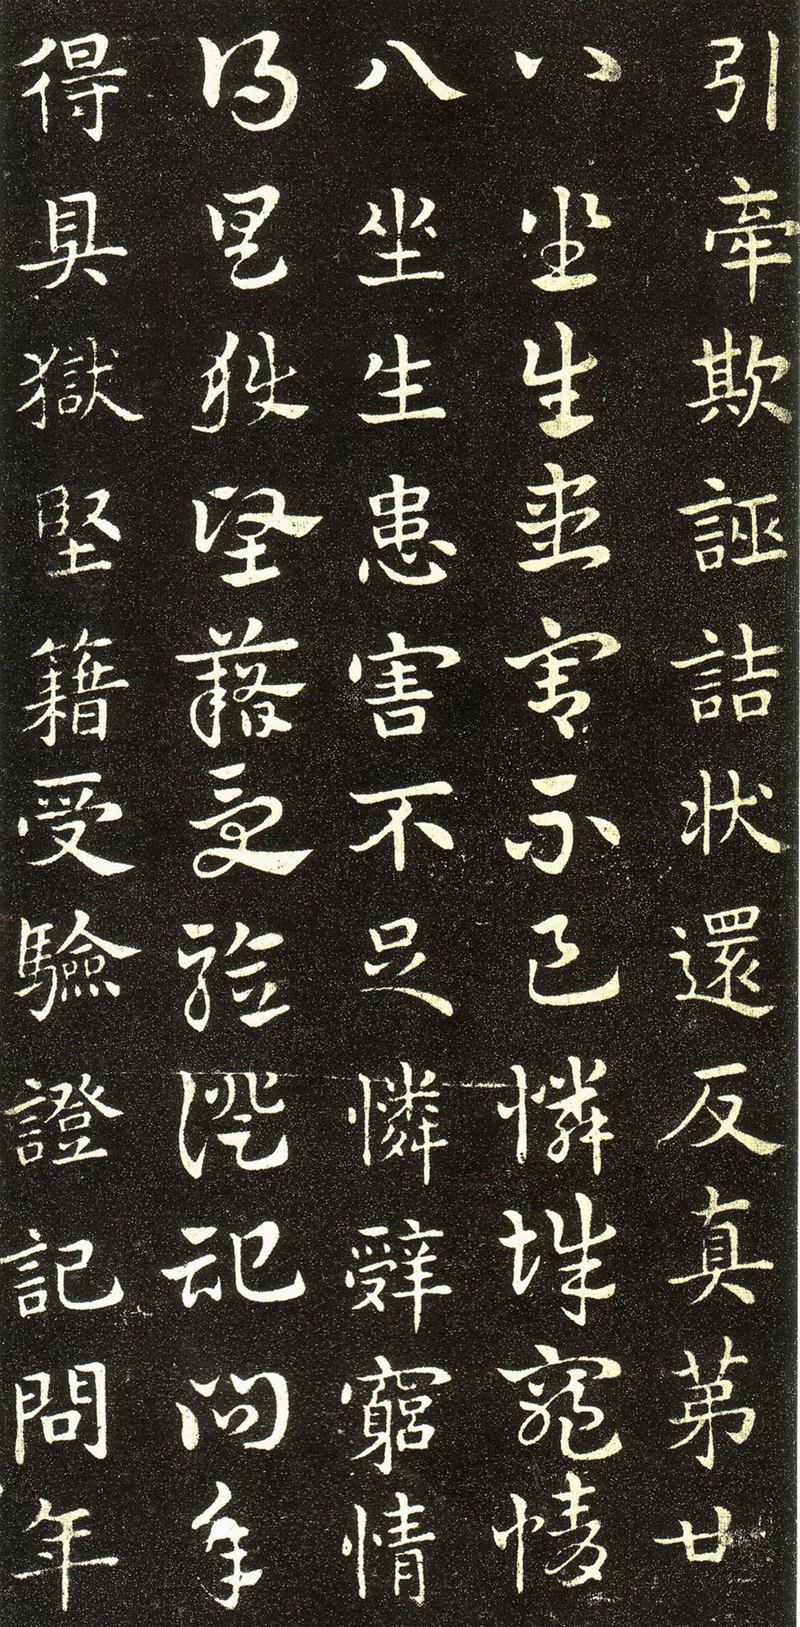 引牽欺誣詰状還反真苐廿
八坐生患害不足憐辭窮情
八坐生患害不足憐辭窮情
得具獄堅藉受驗證記問年
得具獄堅籍受驗證記問年